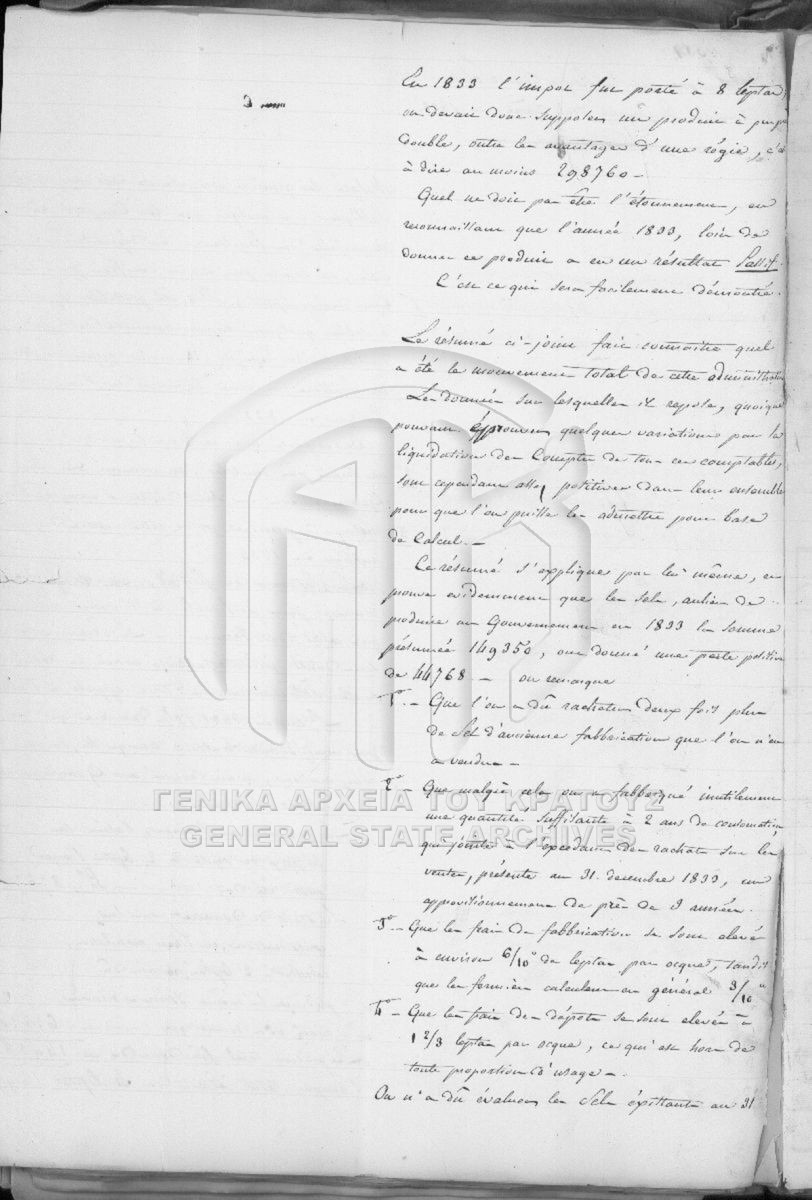 3
En 1833 l'impot fut porté à 8 leptas,
on devait donc supposer un produit à peu près
double, outre les avantages d'une régie, c'est
à dire au moins 298760 -
Quel ne doit pas être l'étonnement, en
reconnaissant que l'année 1833, loin de
donner ce produit a eu un résultat Passif.
C'est ce qui sera facilement démontré.
Le résumé ci-joint fait connaitre quel
a été le mouvement total de cette administration
Les données sur lesquelles il repose, quoique
pouvant éprouver quelques variations par la
liquidation des Comptes de tous ces comptables,
sont cependant assez positives dans leur ensemble
pour que l'on puisse les admettre pour base
de Calcul. -
Ce résumé s'explique par lui même, et
prouve evidemment que les sels, aulieu de
produire au Gouvernement en 1833 la somme
présumée 149350, ont donné une perte positive
de 44768 - on remarque
1° - Que l'on a dû racheter deux fois plus
de Sel d'ancienne fabbrication que l'on n'en
a vendu -
2° - Que malgré cela on a fabbriqué inutilement
une quantité suffisante à 2 ans de consomation,
qui jointe à l'excedant des rachats sur les
ventes, présente au 31. decembre 1833, un
approvisionnement de près de 3 années.
3° - Que les frais de fabbrication se sont elevés
à environ 6/10° de leptas par ocque, tandis
que les fermiers calculent en général 3/10°
4° - Que les frais des dépots se sont elevés à
1 2/3 leptas par ocque, ce qui est hors de
toute proportion d'usage -.
On n'a dû évaluer les Sels existants au 31
ΓΕΝΙΚΑ ΑΡΧΕΙΑ ΤΟΥ ΚΡΑΤΟΥΣ
GENERAL STATE ARCHIVES